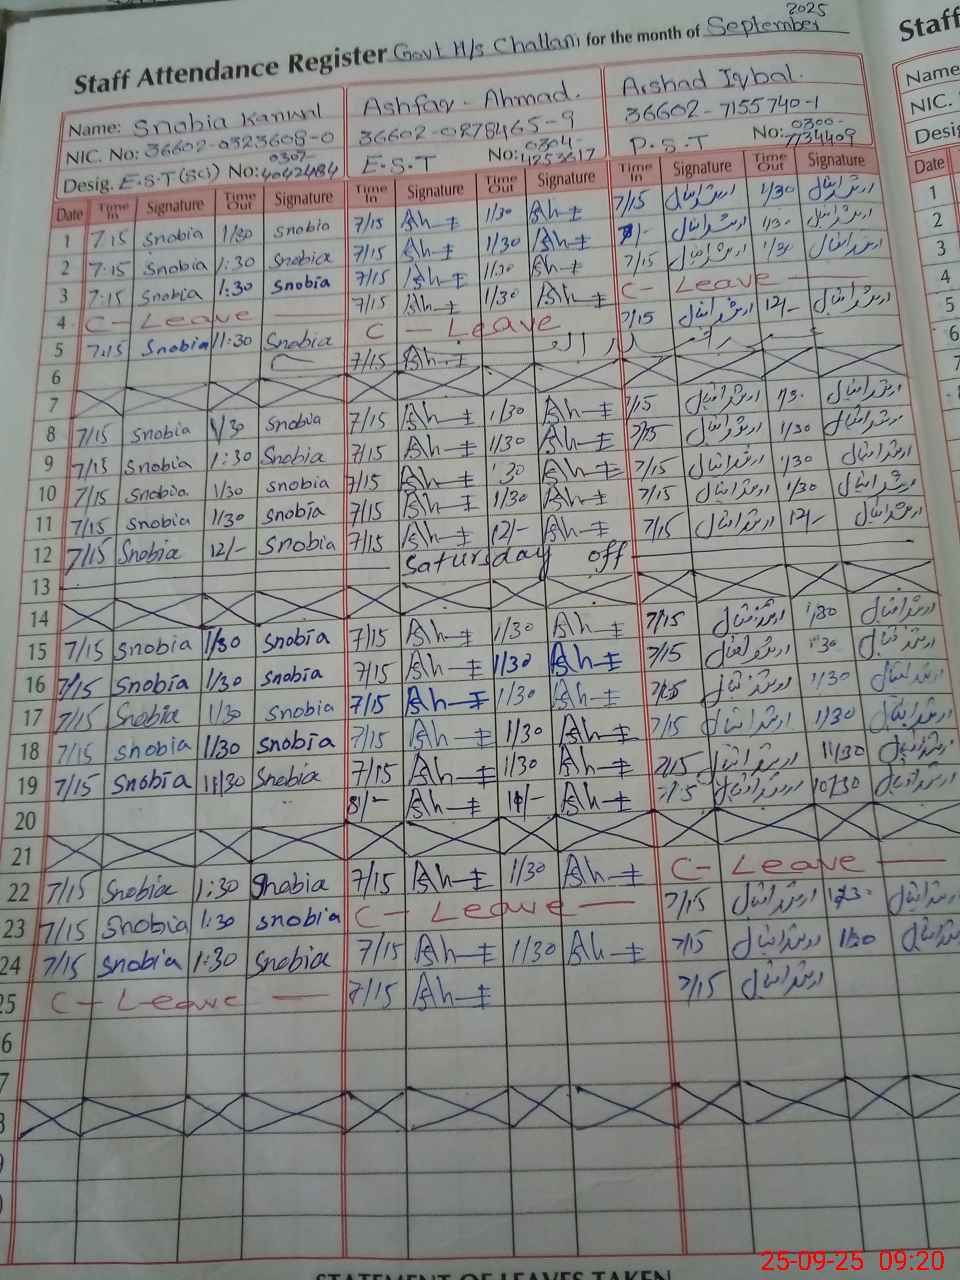 2025
Staff Attendance Register Govt M/s Challani for the month of September
Staff
Name: Snobia Kanwal Ashfaq. Ahmad. Arshad Iqbal.
NIC. No: 36602-0523608-0 36602-0278465-9 36602-7155740-1
Desig. E.S.T (Sci) No: 0307-4042484 E.S.T No: 0304-4253617 P.S.T No: 0300-7734409
Name
NIC.
Desig
Date Time In Signature Time Out Signature Time In Signature Time Out Signature Time In Signature Time Out Signature Date
1 7:15 Snobia 1/30 Snobia 7/15 1/30 7/15 ارشد اقبال 1/30 ارشد اقبال 1
2 7:15 Snobia 1:30 Snobia 7/15 1/30 ارشد اقبال 1/30 ارشد اقبال 2
3 7:15 Snobia 1:30 Snobia 7/15 1/30 7/15 ارشد اقبال 1/30 ارشد اقبال 3
4 C - Leave 7/15 1/30 C - Leave 4
5 7:15 Snobia 11:30 Snobia C - Leave 7/15 ارشد اقبال 12/- ارشد اقبال 5
6 7/15 6
7 7
8 7/15 Snobia 1/30 Snobia 7/15 1/30 7/15 ارشد اقبال 1/30 ارشد اقبال
9 7/15 Snobia 1:30 Snobia 7/15 1/30 7/15 ارشد اقبال 1/30 ارشد اقبال
10 7/15 Snobia 1/30 Snobia 7/15 1/30 7/15 ارشد اقبال 1/30 ارشد اقبال
11 7/15 Snobia 1/30 Snobia 7/15 1/30 7/15 ارشد اقبال 1/30 ارشد اقبال
12 7/15 Snobia 12/- Snobia 7/15 12/- 7/15 ارشد اقبال 12/- ارشد اقبال
13 Saturday off
14
15 7/15 Snobia 1/30 Snobia 7/15 1/30 7/15 ارشد اقبال 1/30 ارشد اقبال
16 7/15 Snobia 1/30 Snobia 7/15 1/30 7/15 ارشد اقبال 1/30 ارشد اقبال
17 7/15 Snobia 1/30 Snobia 7/15 1/30 7/15 ارشد اقبال 1/30 ارشد اقبال
18 7/15 Snobia 1/30 Snobia 7/15 1/30 7/15 ارشد اقبال 1/30 ارشد اقبال
19 7/15 Snobia 11/30 Snobia 7/15 1/30 7/15 ارشد اقبال 11/30 ارشد اقبال
20 8/- 7/15 ارشد اقبال 10/30 ارشد اقبال
21
22 7/15 Snobia 1:30 Snobia 7/15 1/30 C - Leave
23 7/15 Snobia 1:30 Snobia C - Leave 7/15 ارشد اقبال ارشد اقبال
24 7/15 Snobia 1:30 Snobia 7/15 1/30 7/15 ارشد اقبال 1/30 ارشد اقبال
25 C - Leave 7/15 7/15 ارشد اقبال
6
7
8
9
STATEMENT OF LEAVES TAKEN
25-09-25 09:20